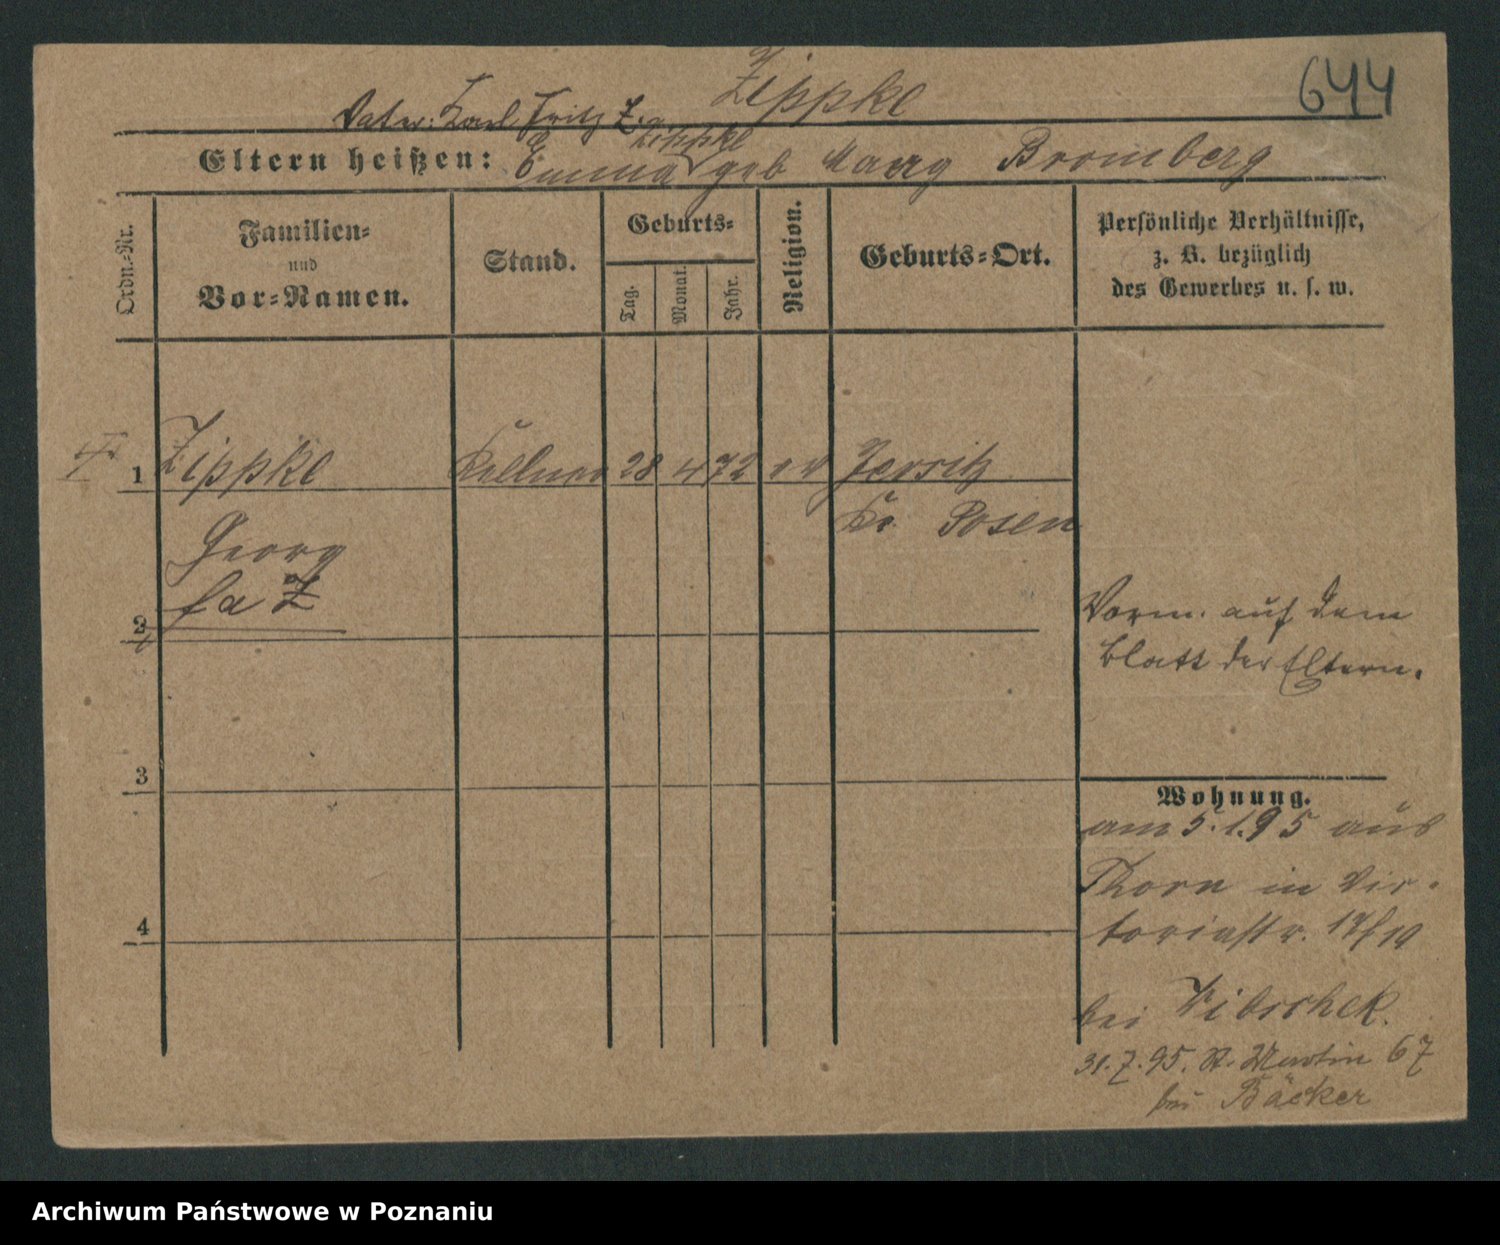 Zippke 644
Vater: Karl Fritz Z.
Zippke
Eltern heißen: Emma geb Bromberg
Ordn.-Nr.
Familien-
und
Vor-Namen.
Stand.
Geburts-
Tag.
Monat.
Jahr.
Religion.
Geburts-Ort.
Persönliche Verhältnisse,
z. B. bezüglich
des Gewerbes u. s. w.
1 Zippke Kellner 28 4 72 ev Jersitz
Kr. Posen
Georg
2
Verm. auf dem
Blatt der Eltern.
3
Wohnung.
am 5.1.95 aus
Thorn in Vic-
toriastr.
4
bei
31.7.95. St. Martin 67
bei Bäcker
Archiwum Państwowe w Poznaniu